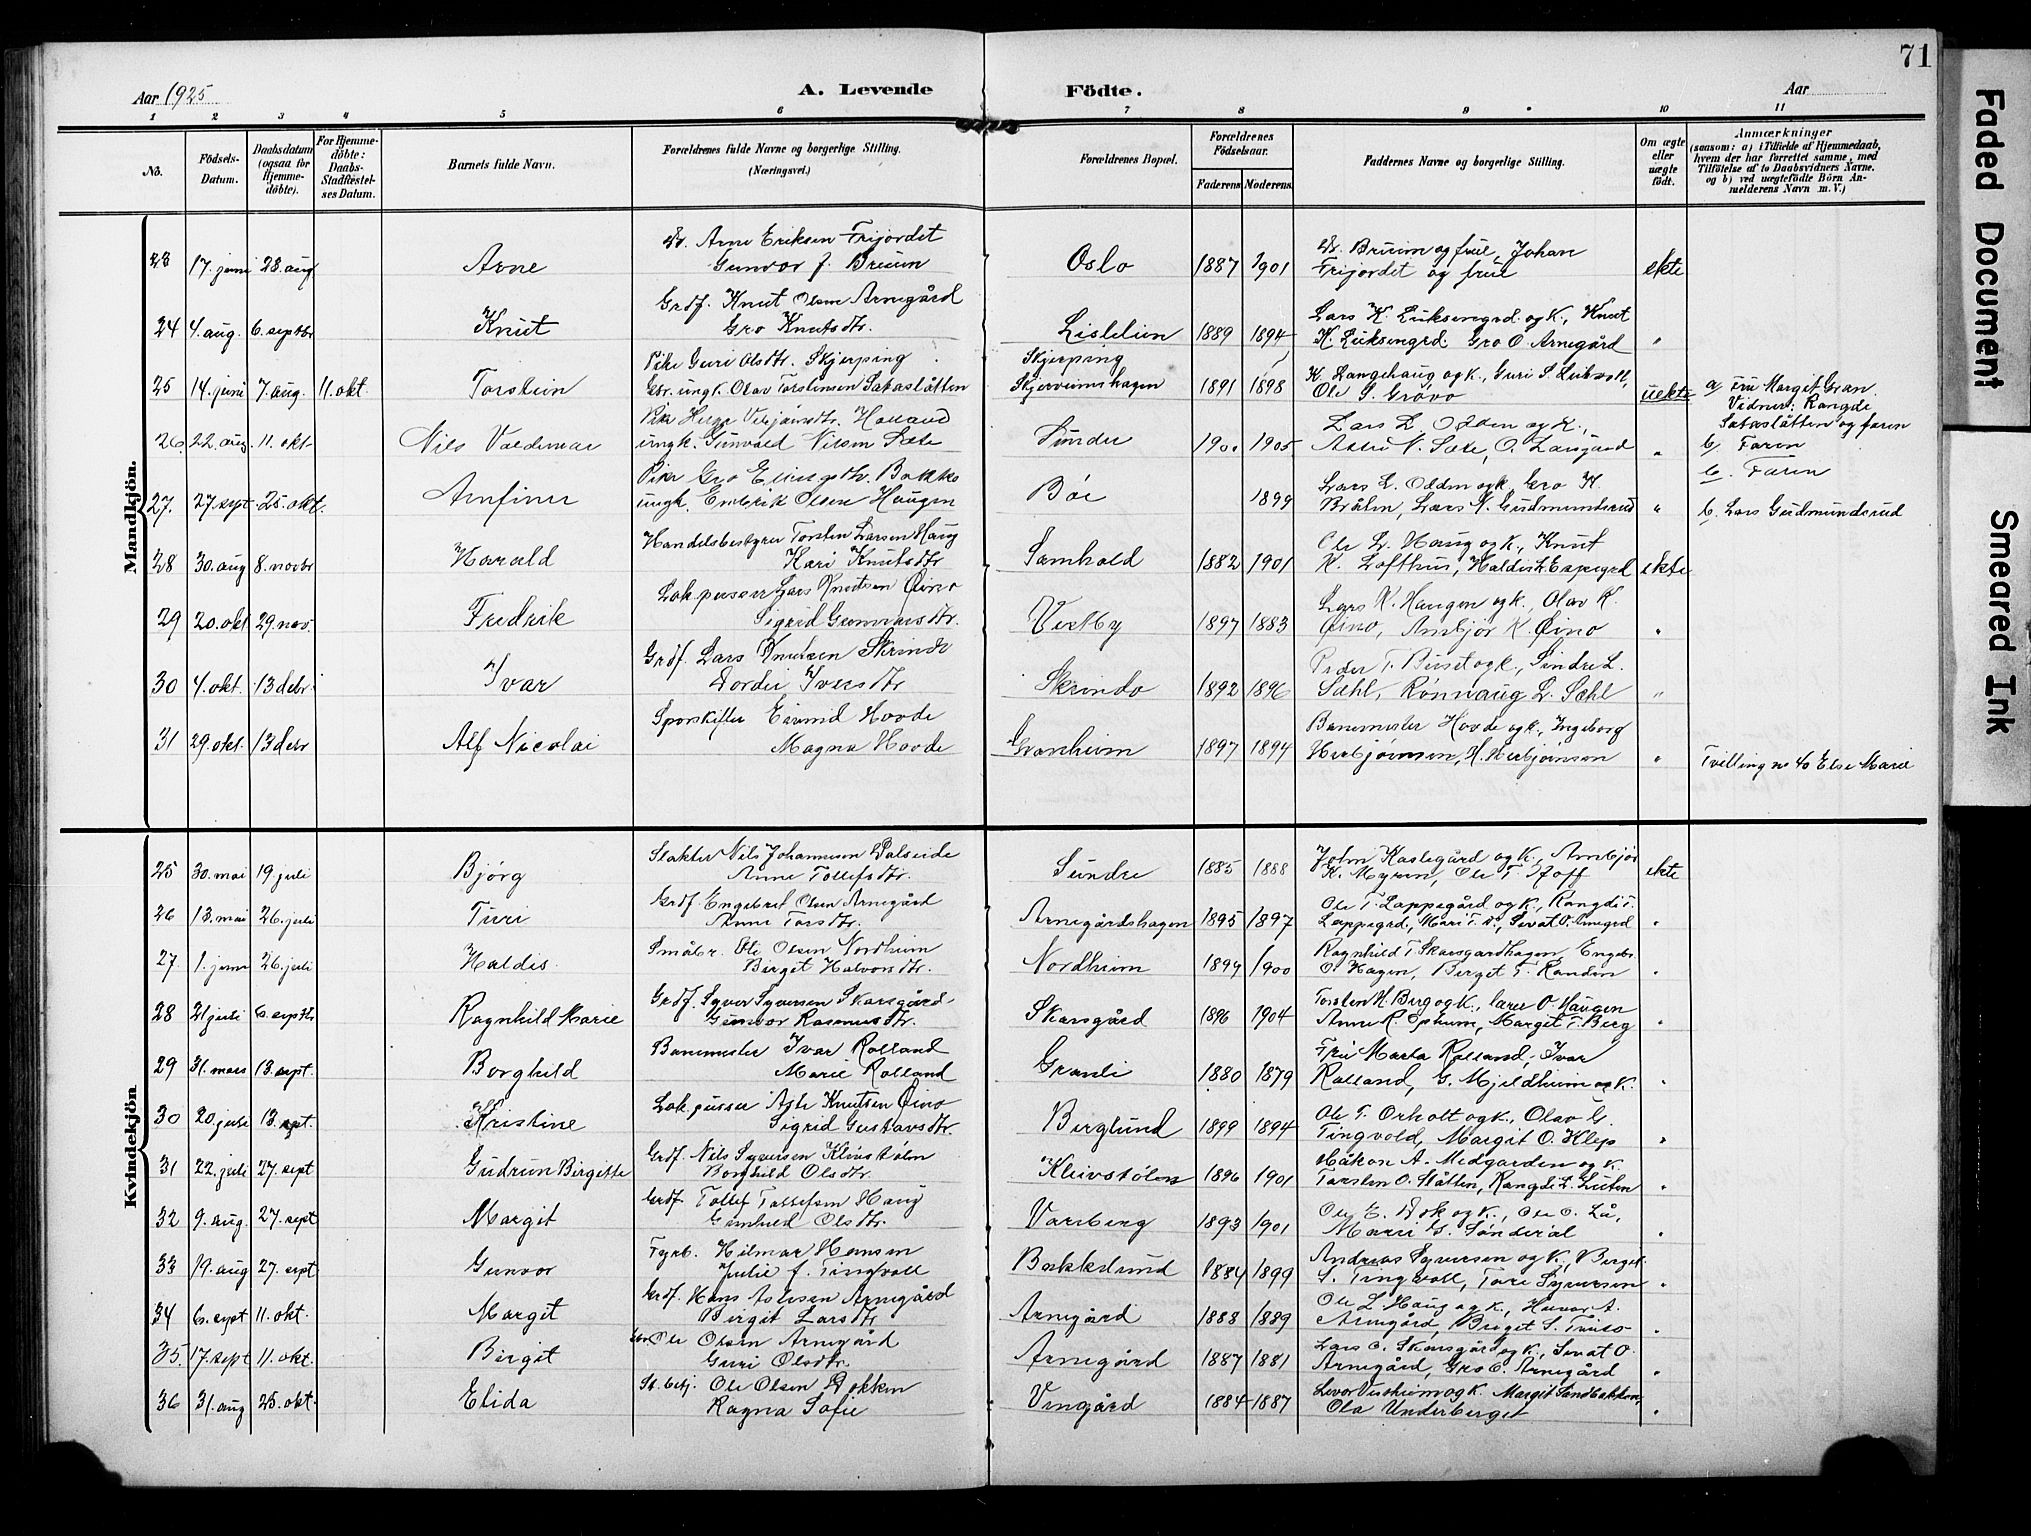 71
Aar 1925
A. Levende Födte.
Aar
1 2 3 4 5 6 7 8 9 10 11
No.
Födsels-Datum.
Daabsdatum (ogsaa for Hjemmedöbte).
For Hjemmedöbte: Daabs-Stadfæstelses Datum.
Barnets fulde Navn.
Forældrenes fulde Navne og borgerlige Stilling. (Næringsvei.)
Forældrenes Bopæl.
Forældrenes Födselsaar.
Faderens. Moderens.
Faddernes Navne og borgerlige Stilling.
Om ægte eller uægte födt.
Anmærkninger
(saasom: a) i Tilfælde af Hjemmedaab, hvem der har forrettet samme, med Tilföielse af to Daabsvidners Navne, og b) ved uægtefödte Börn Anmelderens Navn m. V.)
Mandkjön.
23 17. juni 23. aug. Arne Arne Eriksen Frijordet
Gunvor f. Bruun Oslo 1887 1901 Bruun og frue, Johan
Frijordet og frue ekte
24 4. aug. 6. septbr Knut Grdf. Knut Olsen Arnegård
Gro Knutsdtr. Lislelien 1889 1894 Lars K. Luksengrd. og k., Knut
K. Luksengrd. Gro O. Arnegård "
25 14. juni 7. aug. 11. okt. Torstein Pike Guri Olsdtr. Skjerping
Gbr. ungk. Olav Torstensen Sataslåtten Skjerping
Skjerveimshagen 1891 1898 K. Langehaug og k., Guri S.
Ole S. Grøvo uekte a) Fru Margit Gran
Vidner: Rangdi
Sataslåtten og faren
b) Faren
26. 22. aug. 11. okt Nils Valdemar Holland
ungk. Gunvald Nilsen Sæte Sundre 1900 1905 Lars L. Olden og k.,
N. Sæte, O. Larsgard " b. Faren
27. 27. sept. 25. okt. Arnfinn Pike Gro Ellingsdtr. Bakko
ungk. Embrik Olsen Haugen Böe 1899 Lars L. Olden og k., Gro K.
Bråten, Lars N. Gudmundsrud " b. Lars Gudmundsrud
28 30. aug 8. novbr Harald Handelsbestyrer Torsten Larsen Haug
Kari Knutsdtr Samhold 1882 1901 Ole L. Haug og k., Knut
K. Lofthus, Haldis L. Espegrd ekte
29 20. okt 29. nov. Fredrik Lok. pusser Lars Knutsen Øino
Sigrid Gunnarsdtr. Vestby 1897 1883 Lars K. Haugen og k., Olav K.
Øino, Ambjør K. Øino "
30 4. okt. 13 debr. Ivar Grdf. Lars Knutsen Skrindo
Dordei Iversdtr Skrindo 1892 1896 Peder T. Buset og k., Sindre L.
Sæhl, Rønnaug L. Sæhl "
31 29. okt. 13 debr Alf Nicolai Sporskifter Eivind Hovde
Magna Hovde Granheim 1897 1894 Banemester Hovde og k., Ingeborg
Herbjørnsen, H. Herbjørnsen " Tvilling no 40 Else Marie
Kvindekjön
25 30. mai 19 juli Bjørg Slakter Nils Johannesen Dalseide
Anne Tollefsdtr. Sundre 1885 1888 John Kaslegård og k., Ambjør
K. Myren, Ole T. Hoff ekte
26 13. mai 26. juli Turi Grdf. Engebret Olsen Arnegård
Anne Torsdtr. Arnegårdshagen 1895 1897 Ole T. Lappegård og k., Rangdi T.
Lappegrd., Mari T. Sevat O. Arnegrd "
27 1. juni 26. juli Haldis Småbr. Ole Olsen Nordheim
Birgit Halvorsdtr. Nordheim 1894 1900 Ragnhild T. Skarsgardhagen, Engebr.
O. Hagen, Birget T. Randen "
28 21 juli 6. septbr Ragnhild Marie Grdf. Syver Syversen Skarsgård
Gunvor Rasmusdtr. Skarsgård 1896 1904 Torsten H. Berg og k., lærer O. Haugen
Anne R. Opheim, Margit T. Berg "
29 31. mars 13. sept. Borghild Banemester Ivar Rolland
Marie Rolland Granli 1880 1879 Fru Marta Rolland, Ivar
Rolland, G. Mjeldheim og k. "
30 20. juli 13. sept. Kristine Lok. pusser Asle Knutsen Øino
Sigrid Gustavsdtr. Berglund 1899 1894 Ole T. Orholt og k., Olav G.
Tingvold, Margit O. Klep "
31 22. juli 27. sept Gudrun Birgitte Grdf. Nils Syversen Kleivstølen
Borghild Olsdtr. Kleivstølen 1896 1901 Håkon A. Medgarden og k.
Torsten O. Slåtten, Rangdi L. "
32 9. aug. 27. sept Margit Grdf. Tollef Tollefsen Haug
Gunhild Olsdtr. Varberg 1893 1901 Ole E. Dok og k., Ole O. Lå,
Marie G. Sønderål "
33 19. aug 27. sept Gunvor Fyrb. Hilmar Hansen
Julie f. Tingvoll Bakkelund 1884 1899 Andreas Syversen og k., Birget
S. Tingvoll, Tore Syversen "
34 6. sept 11. okt. Margit Grdf. Hans Aslesen Arnegård
Birgit Larsdtr Arnegård 1888 1889 Ole L Haug og k., A.
Arnegård, Birget S. "
35. 17. sept 11. okt. Birgit Ole Olsen Arnegård
Guri Olsdtr. Arnegård 1887 1881 Lars O. Skarsgård og k., Sevat O.
Arnegård, Gro O. Arnegård "
36 31. aug 25. okt. Elida Ole Olsen Dokken
Ragna Sofie Vingård 1884 1887 Levor Vestheim og k. Margit Sandbakken,
Ola Underberget "
Faded Document
Smeared Ink